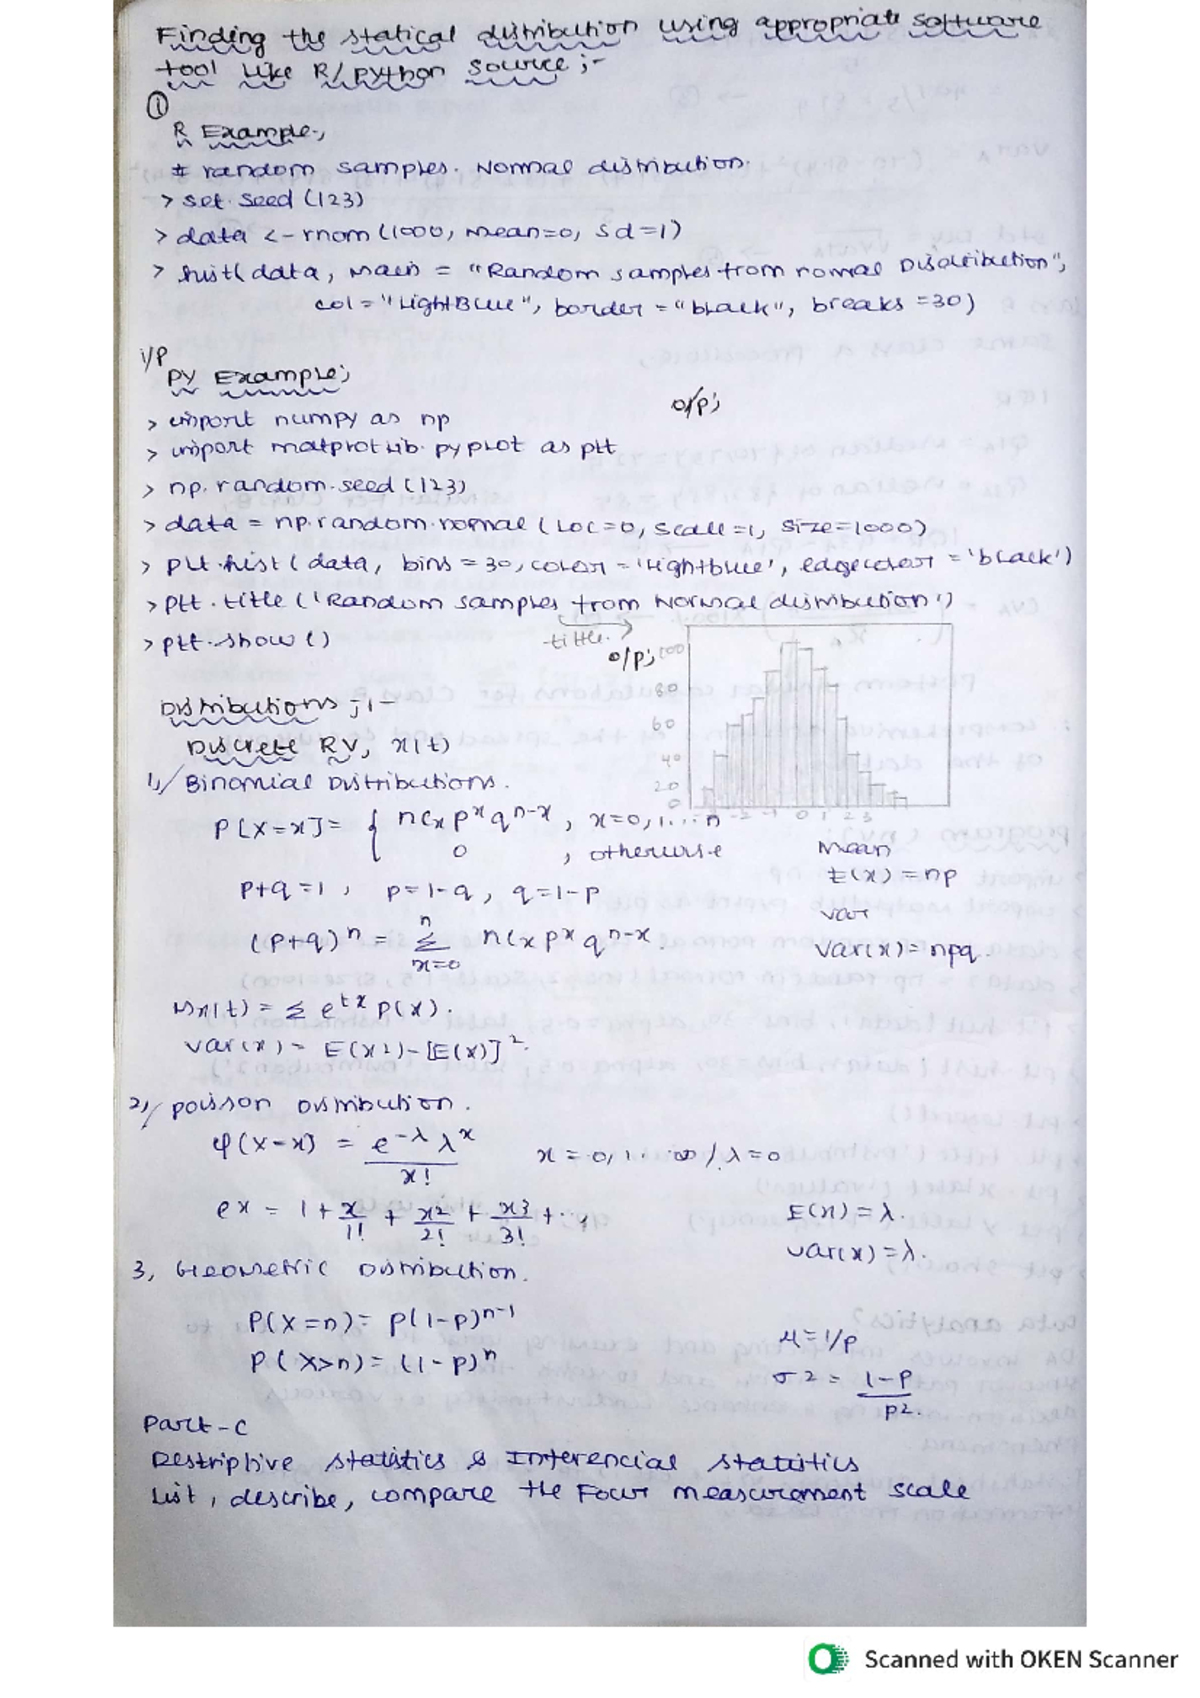 Finding the statical distribution using appropriate software
tool Like R/python source ;-
①
R Example;
# random samples. Normal distribution.
> set. seed (123)
> data <- rnom (1000, mean=0, sd=1)
> hist( data, main = "Random samples from normal Distribution",
col = "LightBlue", border = "black", breaks =30)
i/P
PY Example;
o/p;
> import numpy as np
> import matprotlib. pyplot as plt
> np. random. seed (123)
> data = np.random.normal (Loc=0, scale=1, size=1000)
> plt.hist ( data, bins = 30, color = 'lightblue', edgecolor = 'black')
> plt. title ('Random samples from Normal distribution')
> plt. show ()
tittle.
o/p;
100
80
60
40
20
0
-2 -1 0 1 2 3
Distributions ;1-
Discrete RV, x(t)
1,/ Binomial Distributions.
P[X=x]= { nCx p^x q^n-x , x=0,1...n
0 , otherwise
Mean
E(x) = np
p+q =1 , p=1-q , q=1-p
var
(p+q)^n = Σ n x=0 nCx p^x q^n-x.
var(x) = npq.
Mx(t) = Σ e^tx p(x).
var(x) = E(x2)-[E(x)]^2.
2,/ poisson Distribution.
P(X=x] = e^-λ λ^x / x!
x = 0,1.. ∞ / λ=0
ex = 1 + x/1! + x2/2! + x3/3! + ..,
E(x) = λ.
var(x) = λ.
3, Geometric Distribution.
P(X=n) = p(1-p)^n-1
μ = 1/p
P( X>n) = (1-p)^n
σ2 = 1-p / p2.
Part-C
Destriptive statistics & Interencial statistics
List, describe, compare the Four measurement scale
Scanned with OKEN Scanner